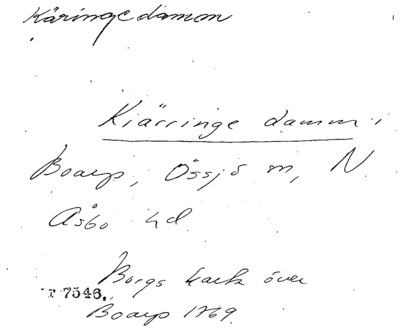 Käringedamon
Kiärringe damm i
Boarp, Össjö sn, N.
Åsbo hd.
Borgs karta över
7546.
Boarp 1769.